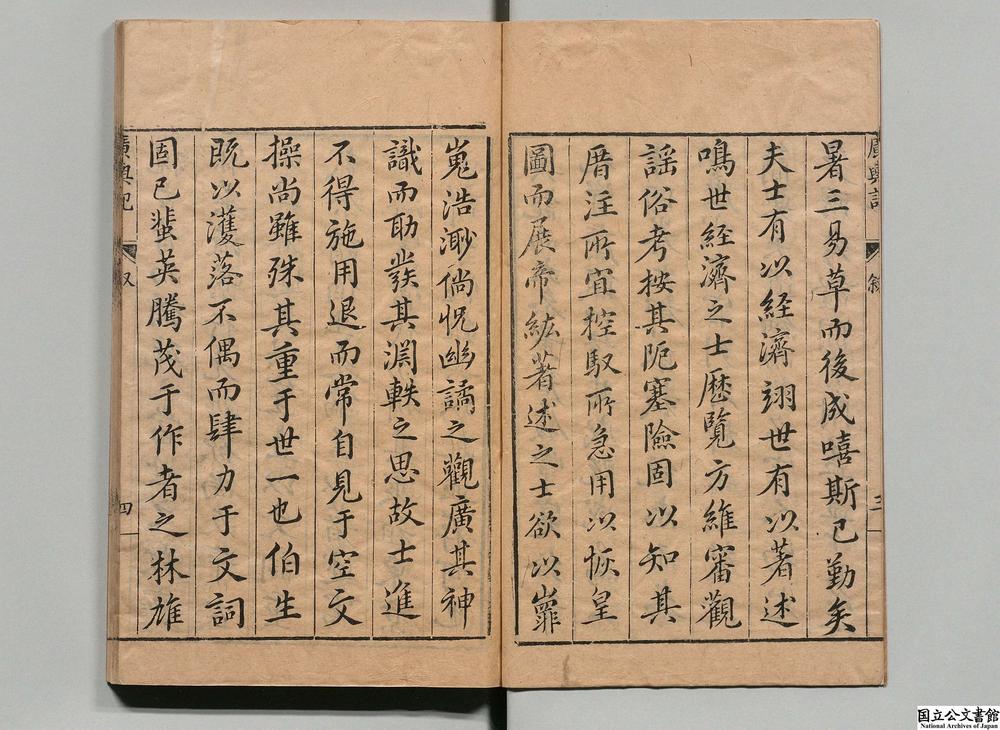 廣輿記
敘
三
暑三易草而後成嘻斯已勤矣
夫士有以経濟翊世有以著述
鳴世経濟之士歷覽方維審觀
謡俗考按其阨塞險固以知其
厝注所宜控馭所急用以恢皇
圖而展帝紘著述之士欲以嶵
嵬浩渺倘怳幽譎之觀廣其神
識而助發其淵軼之思故士進
不得施用退而常自見于空文
操尚雖殊其重于世一也伯生
既以濩落不偶而肆力于文詞
固已蜚英騰茂于作者之林雄
廣輿記
叙
四
国立公文書館
National Archives of Japan